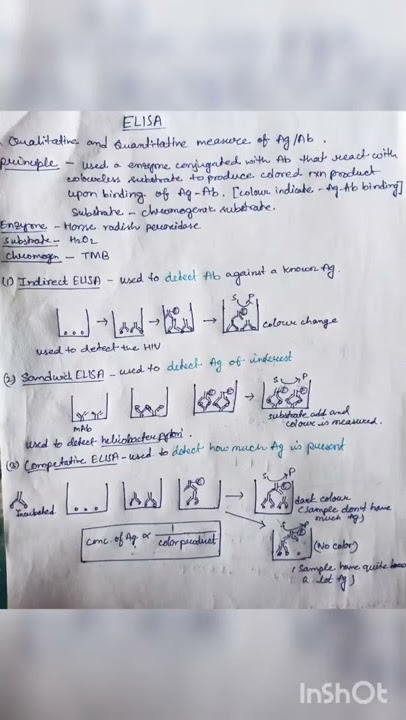 ELISA
Qualitative and Quantitative measure of Ag/Ab.
principle - used a enzyme conjugated with Ab that react with
colourless substrate to produce colored rxn product
upon binding of Ag-Ab. [colour indicate - Ag-Ab binding]
Substrate - chromogenic substrate.
Enzyme - Horse radish peroxidase
substrate - H2O2
Chromogen - TMB
(1) Indirect ELISA - used to detect Ab against a known Ag.
S P
E
colour change
used to detect the HIV
(2) Sandwich ELISA - used to detect Ag of interest
S P
mAb
substrate add and
colour is measured.
used to detect heliobacter pylori.
(3) Competative ELISA - used to detect how much Ag is present
S P
Incubated
dark colour
(sample don't have
much Ag)
conc. of Ag ∝ 1/color product
S P
(No color)
(Sample have quite
a lot Ag)
InShOt